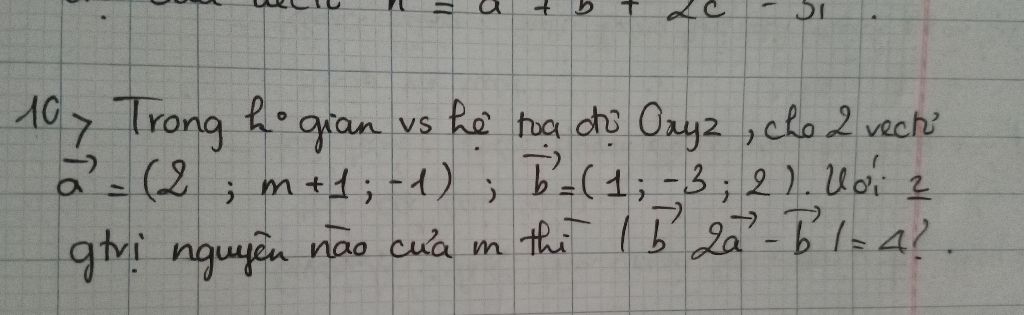 n = a + b + 2c - 3i .
10> Trong ho gian vs hệ tọa độ Oxyz, cho 2 vectơ
a⃗ = (2 ; m+1 ; -1) ; b⃗ = (1 ; -3 ; 2). Với 2
gtrị nguyên nào của m thì | b⃗ 2a⃗ - b⃗ | = 4?.